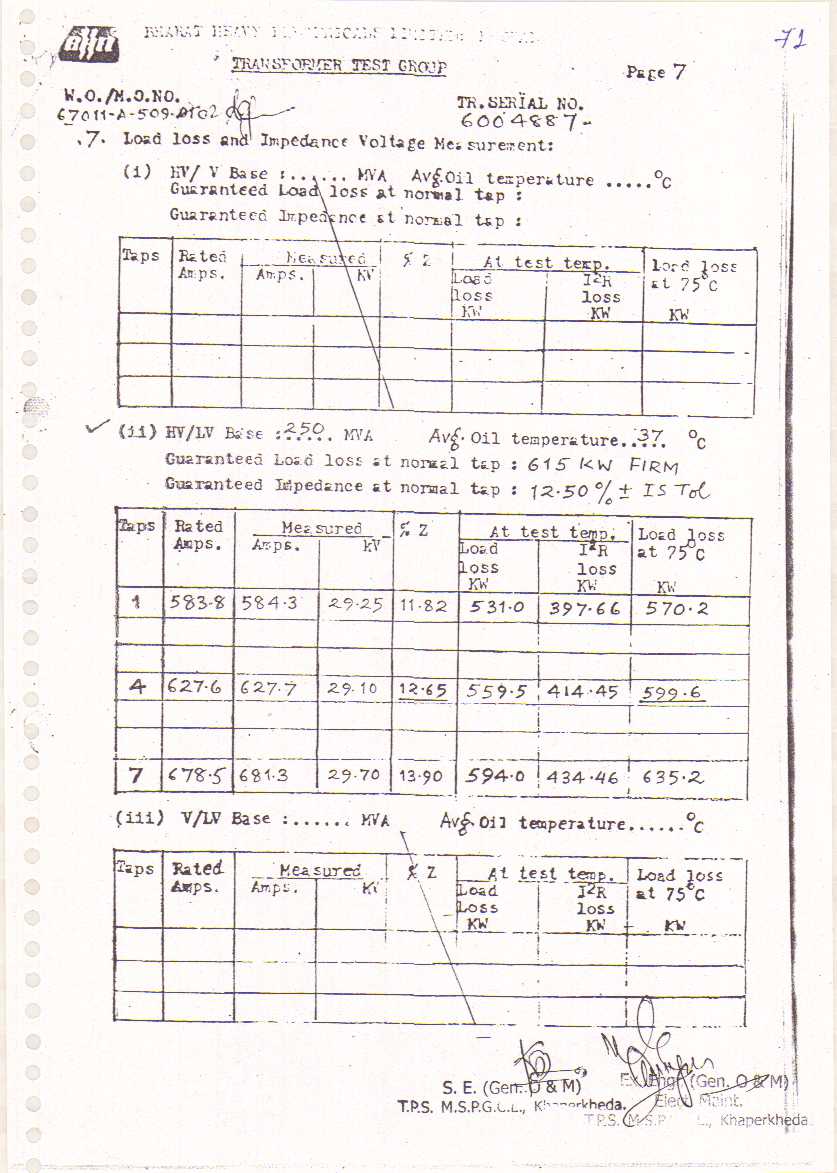 BHARAT HEAVY ELECTRICALS LIMITED
71
TRANSFORMER TEST GROUP
Page 7
W.O./M.O.NO.
TR.SERIAL NO.
67011-A-509-0102
6004887-
.7. Load loss and Impedance Voltage Measurement:
(i) HV/ V Base :...... MVA Avg.Oil temperature .....°C
Guaranteed Load loss at normal tap :
Guaranteed Impedence at normal tap :
Taps Rated Amps. Measured % Z At test temp. Load loss at 75°C
Amps. KV Load loss KW I²R loss KW KW
(ii) HV/LV Base :.250. MVA Avg. Oil temperature..37.. °C
Guaranteed Load loss at normal tap : 615 KW FIRM
Guaranteed Impedance at normal tap : 12.50 % ± IS Tol
Taps Rated Amps. Measured % Z At test temp. Load loss at 75°C
Amps. KV Load loss KW I²R loss KW KW
1 583.8 584.3 29.25 11.82 531.0 397.66 570.2
4 627.6 627.7 29.10 12.65 559.5 414.45 599.6
7 678.5 681.3 29.70 13.90 594.0 434.46 635.2
(iii) V/LV Base :...... MVA Avg. Oil temperature......°C
Taps Rated Amps. Measured % Z At test temp. Load loss at 75°C
Amps. KV Load Loss KW I²R loss KW KW
S. E. (Gen. O & M)
T.P.S. M.S.P.G.C.L., Khaperkheda.
Ex. Engr (Gen. O & M)
Elect. Maint.
T.P.S. M.S.P. L., Khaperkheda